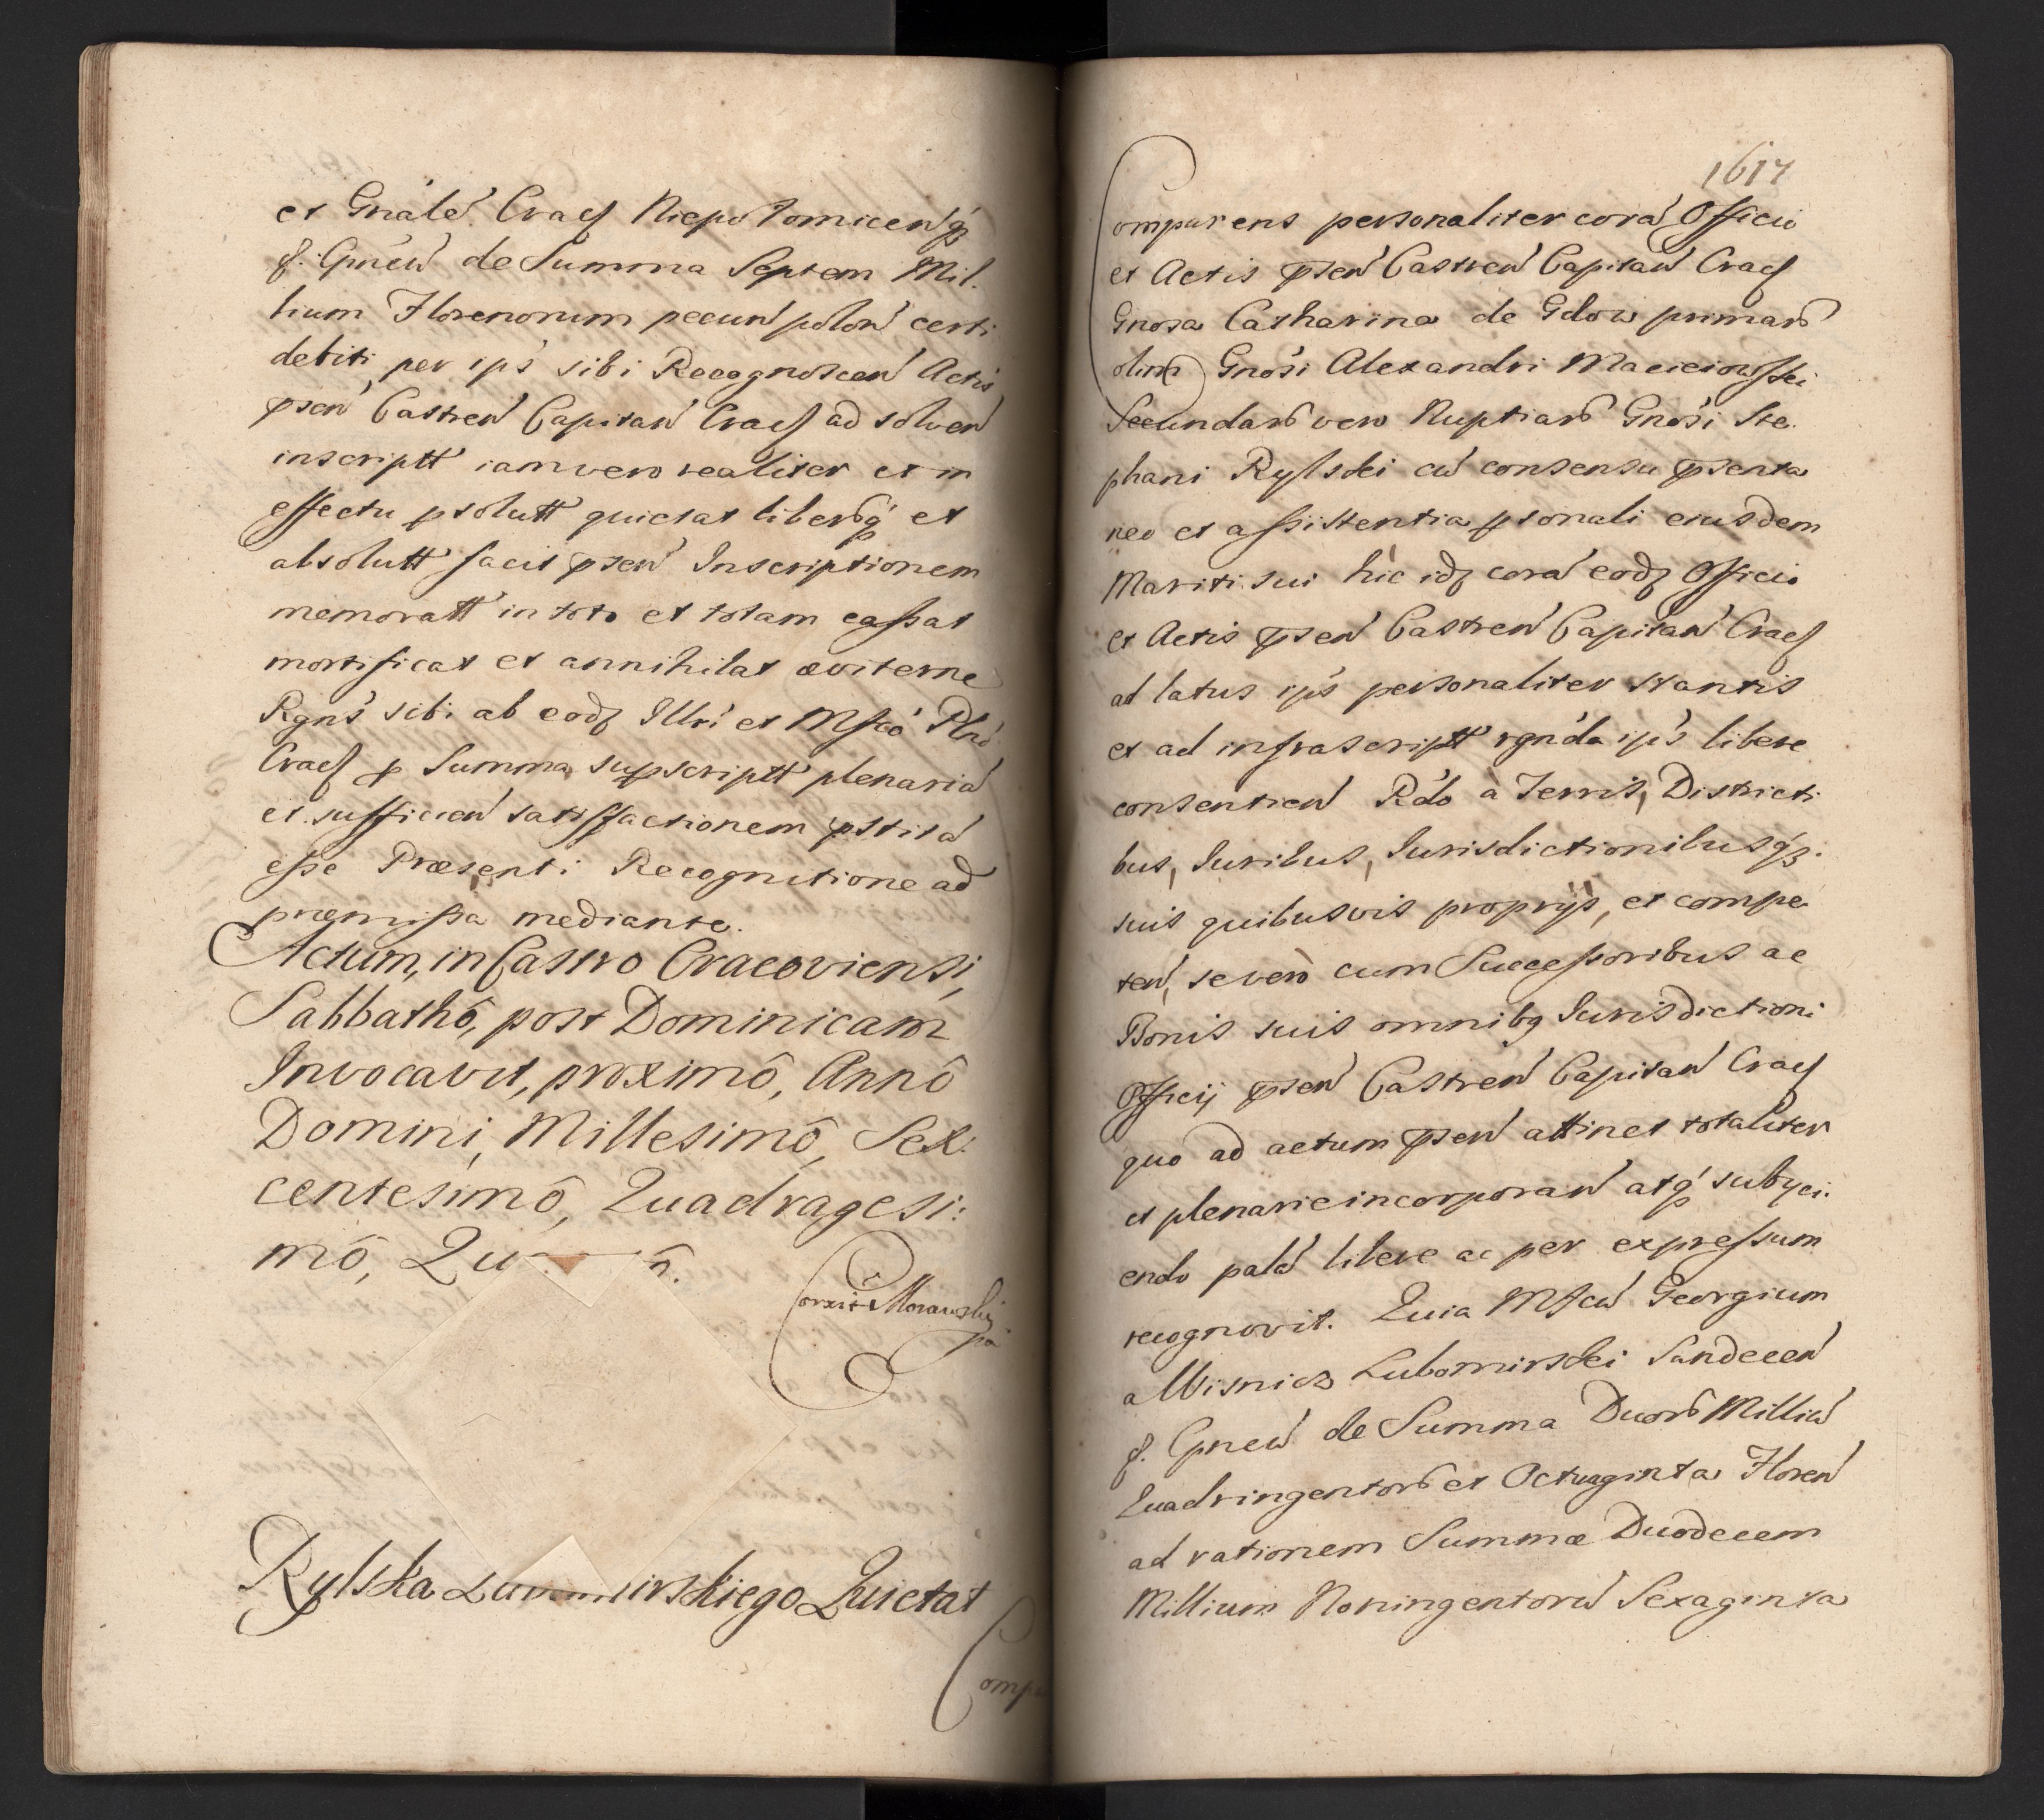 et Gnale Crac Niepolomicenq₃
&. Gneu de Summa Septem Mil.
lium Florenorum pecun polon certi
debiti per ips sibi Recognoscen Actis
psen Castren Capitan Crac ad solven
inscriptt iam vero realiter et in
effectu psolutt quietat liberq et
absolutt facit psen Inscriptionem
memoratt in toto et totam cassat
mortificat et annihilat æviterne
Rgns sibi ab eodz Illri et Mfco Plno
Crac p Summa supscriptt plenaria
et sufficien satisfactionem pstita
esse Præsenti Recognitione ad
præmissa mediante.
Actum, in Castro Cracoviensi,
Sabbathô, post Dominicam
Invocavit, proximô, Annô
Domini, Millesimô, Sex:
centesimô, Quadragesi:
mô, Qu
Corxit Morawski
pa
Rylska Lubomirskiego Quietat
Comp
1617
Comparens personaliter cora Officio
et Actis psen Castren Capitan Crac
Gnosa Catharina de Gdow primar
olim Gnosi Alexandri Macieiowski
Secundar vero Nuptiar Gnosi Ste.
phani Rylski cu consensu psenta
neo et assistentia psonali eiusdem
Mariti sui hic idz cora eodz Officio
et Actis psen Castren Capitan Crac
ad latus ips personaliter stantis
et ad infrascriptt rgnda ips libere
consentien Rdo à Terris, Districti
bus, Iuribus, Iurisdictionibusq₃.
suis quibusvis proprijs, et compe
ten, se vero cum Successoribus ac
Bonis suis omnibq Iurisdictioni
Officij psen Castren Capitan Crac
quo ad actum psen attinet totaliter
et plenarie incorporan atq subyci.
endo pala libere ac per expressum
recognovit. Quia Mfcu Georgium
a Wisnicz Lubomirski Sandecen
&. Gneu de Summa Duor Milliu
Quadringentor et Octuaginta Floren
ad rationem Summæ Duodecem
Millium Noningentoru Sexaginta